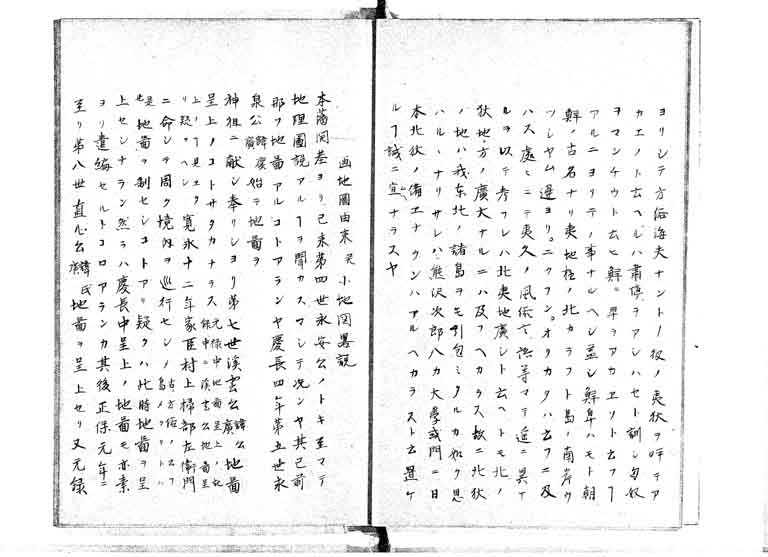 ヨリシテ方俗海夫ナントノ彼ノ夷狄ヲ呼テア
カエノト云ヘルハ肅慎ヲアシハセト訓シ匈奴
ヲマンチウト云ヒ鮮卑ヲアカエリト云フ
アルニヨリテノ事ナルヘシ蓋シ鮮卑ハモト朝
鮮ノ古名ナリ夷地極ノ北カラフト島ノ南岸ウ
シヤム邊ヨリニクフンオリカタハ云フニ及
ハス處々ニテ夷久ノ風俗言語等マテ逈ニ異ケ
ルヲ以テ考フレハ北夷地廣シト云ヘトモ北ノ
狄地ノ方ノ廣大ナルニハ及フヘカラス故ニ北狄
ノ地ハ我东北ノ諸島ヲモ引包ミタルカ如ク思
ハルヽナリサレハ熊沢次郎八カ大學或問ニ曰
本北狄ノ備エナクンハアルヘカラスト云置ケ
ルヿ誠ニ宜ムヘナラスヤ
画地圖由来及小地図畧説
本藩開基ヨリ己来第四世永安公ノトキ至マテ
地理圖説アルヿヲ聞カスマシテ況ンヤ其己前
那ソ地啚アルコトアランヤ慶長四年第五世永
泉公諱慶廣始テ地啚ヲ
神祖ニ献シ奉リシヨリ第七世渓雲公諱公廣地啚
呈上ノコトサタカナラス元徐中地啚呈上ノ紀録中ニ渓雲公地啚呈
上ノヿ見エタリ疑ラヘシ寛永十二年家臣村上掃部左衛門
ニ命シテ周ク境内ヲ巡行セシノ
是地啚ヲ制センコトアリ疑クハ此時地啚ヲ呈
上センナラン然ラハ慶長中呈上ノ地啚モ亦素
ヨリ遺編セルトコロアランカ其後正保元年ニ
至リ第八世直心公諱氏廣地啚ヲ呈上セリ又元録